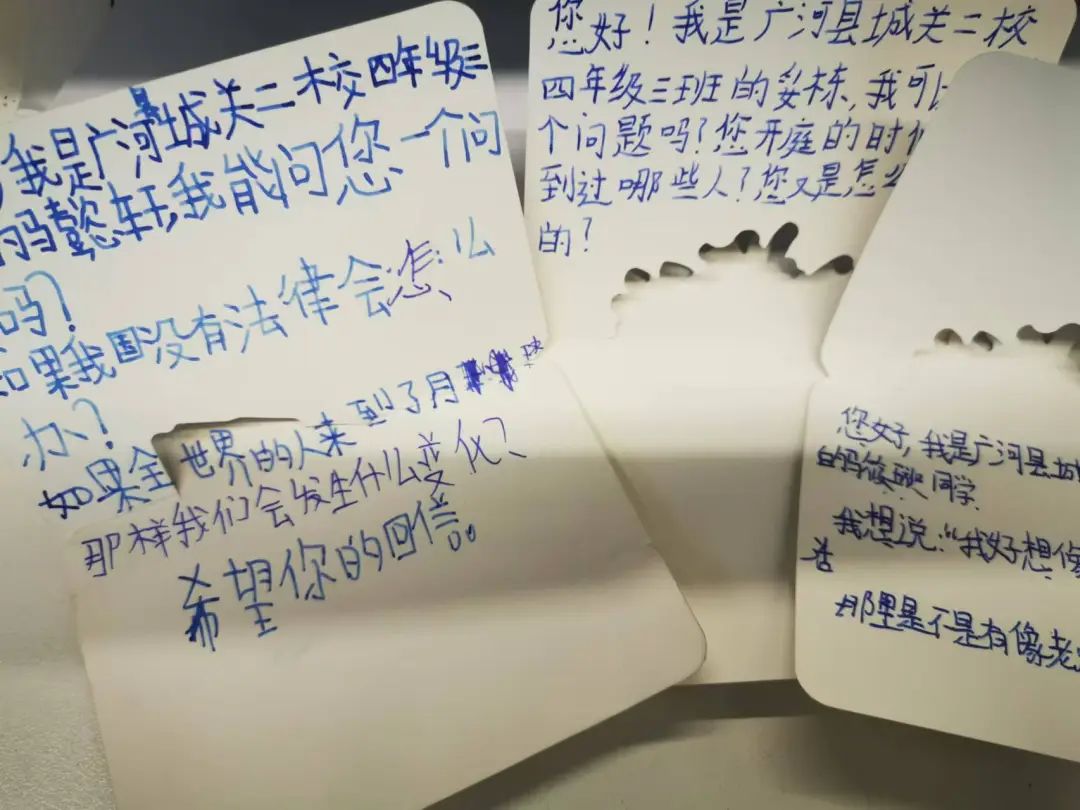 我是广河县城关二校四年级三
的马懿轩,我能问您一个问
吗?
如果我国没有法律会怎么
办?
如果全世界的人来到了月球
那样我们会发生什么变化?
希望你的回信。
您好!我是广河县城关二校
四年级三班的妥栋,我可
个问题吗?您开庭的时
到过哪些人?您又是怎么
的?
您好,我是广河县城
的马 同学
我想说:“我好想像
那里是不是有像老